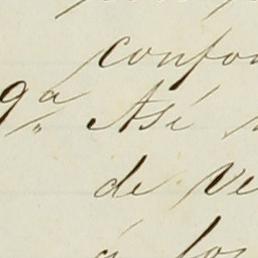 confo
9ª Así
de ve
á los